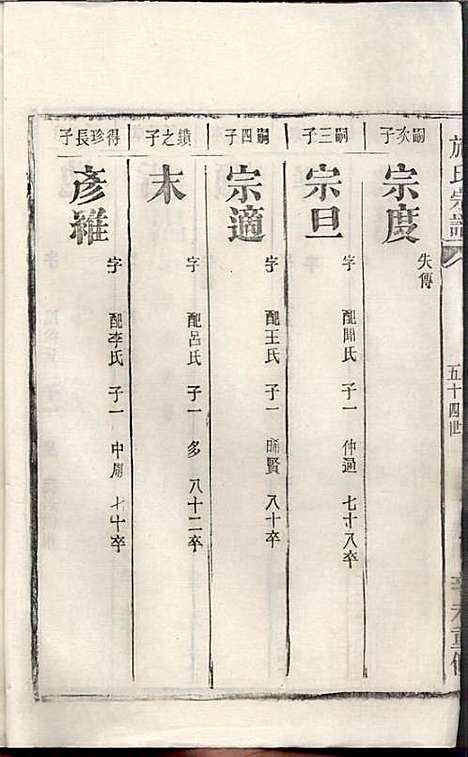 施氏宗譜
五十四世
嗣次子
宗度
失傳
嗣三子
宗旦
字 配聞氏 子一 仲通 七十八卒
嗣四子
宗適
字 配王氏 子一 晞賢 八十卒
鎮之子
末
字 配呂氏 子一 多 八十二卒
得珍長子
彥雍
字 配李氏 子一 中周 七十卒